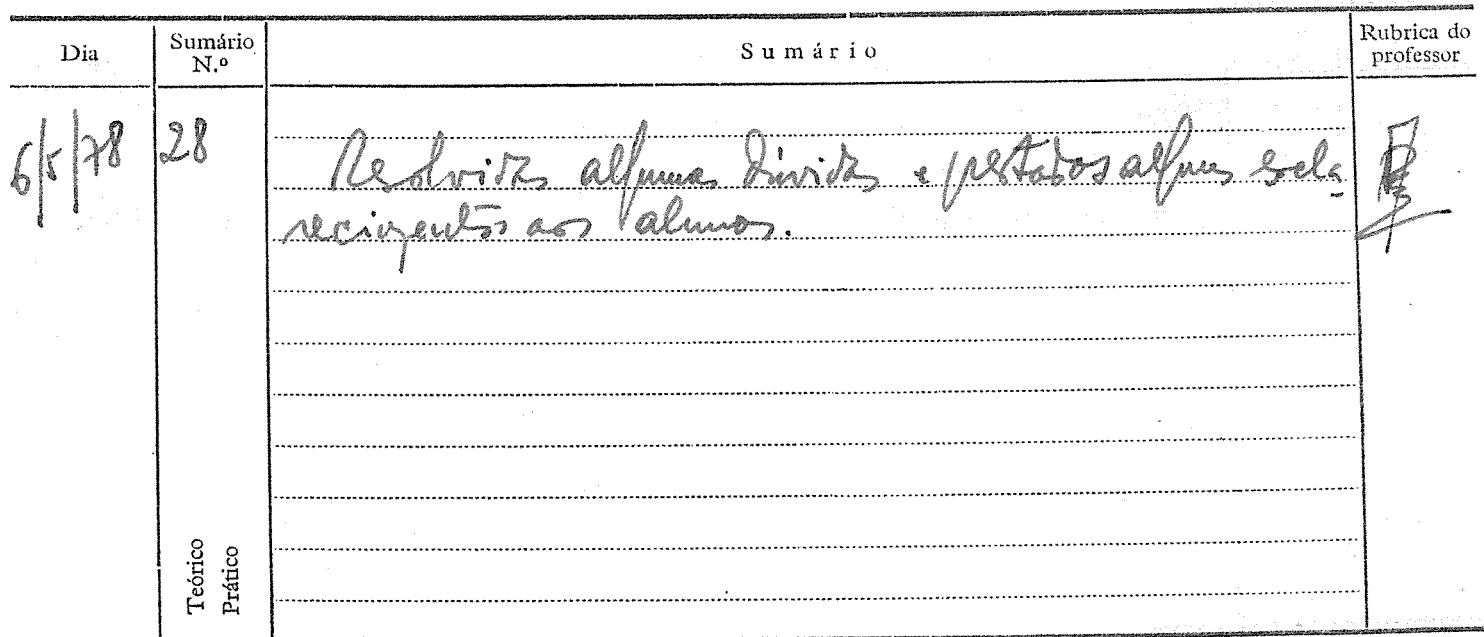 Dia
Sumário N.º
Sumário
Rubrica do professor
6/5/78
28
Resolvidas algumas dúvidas e prestados alguns escla-
recimentos aos alunos.
Teórico
Prático